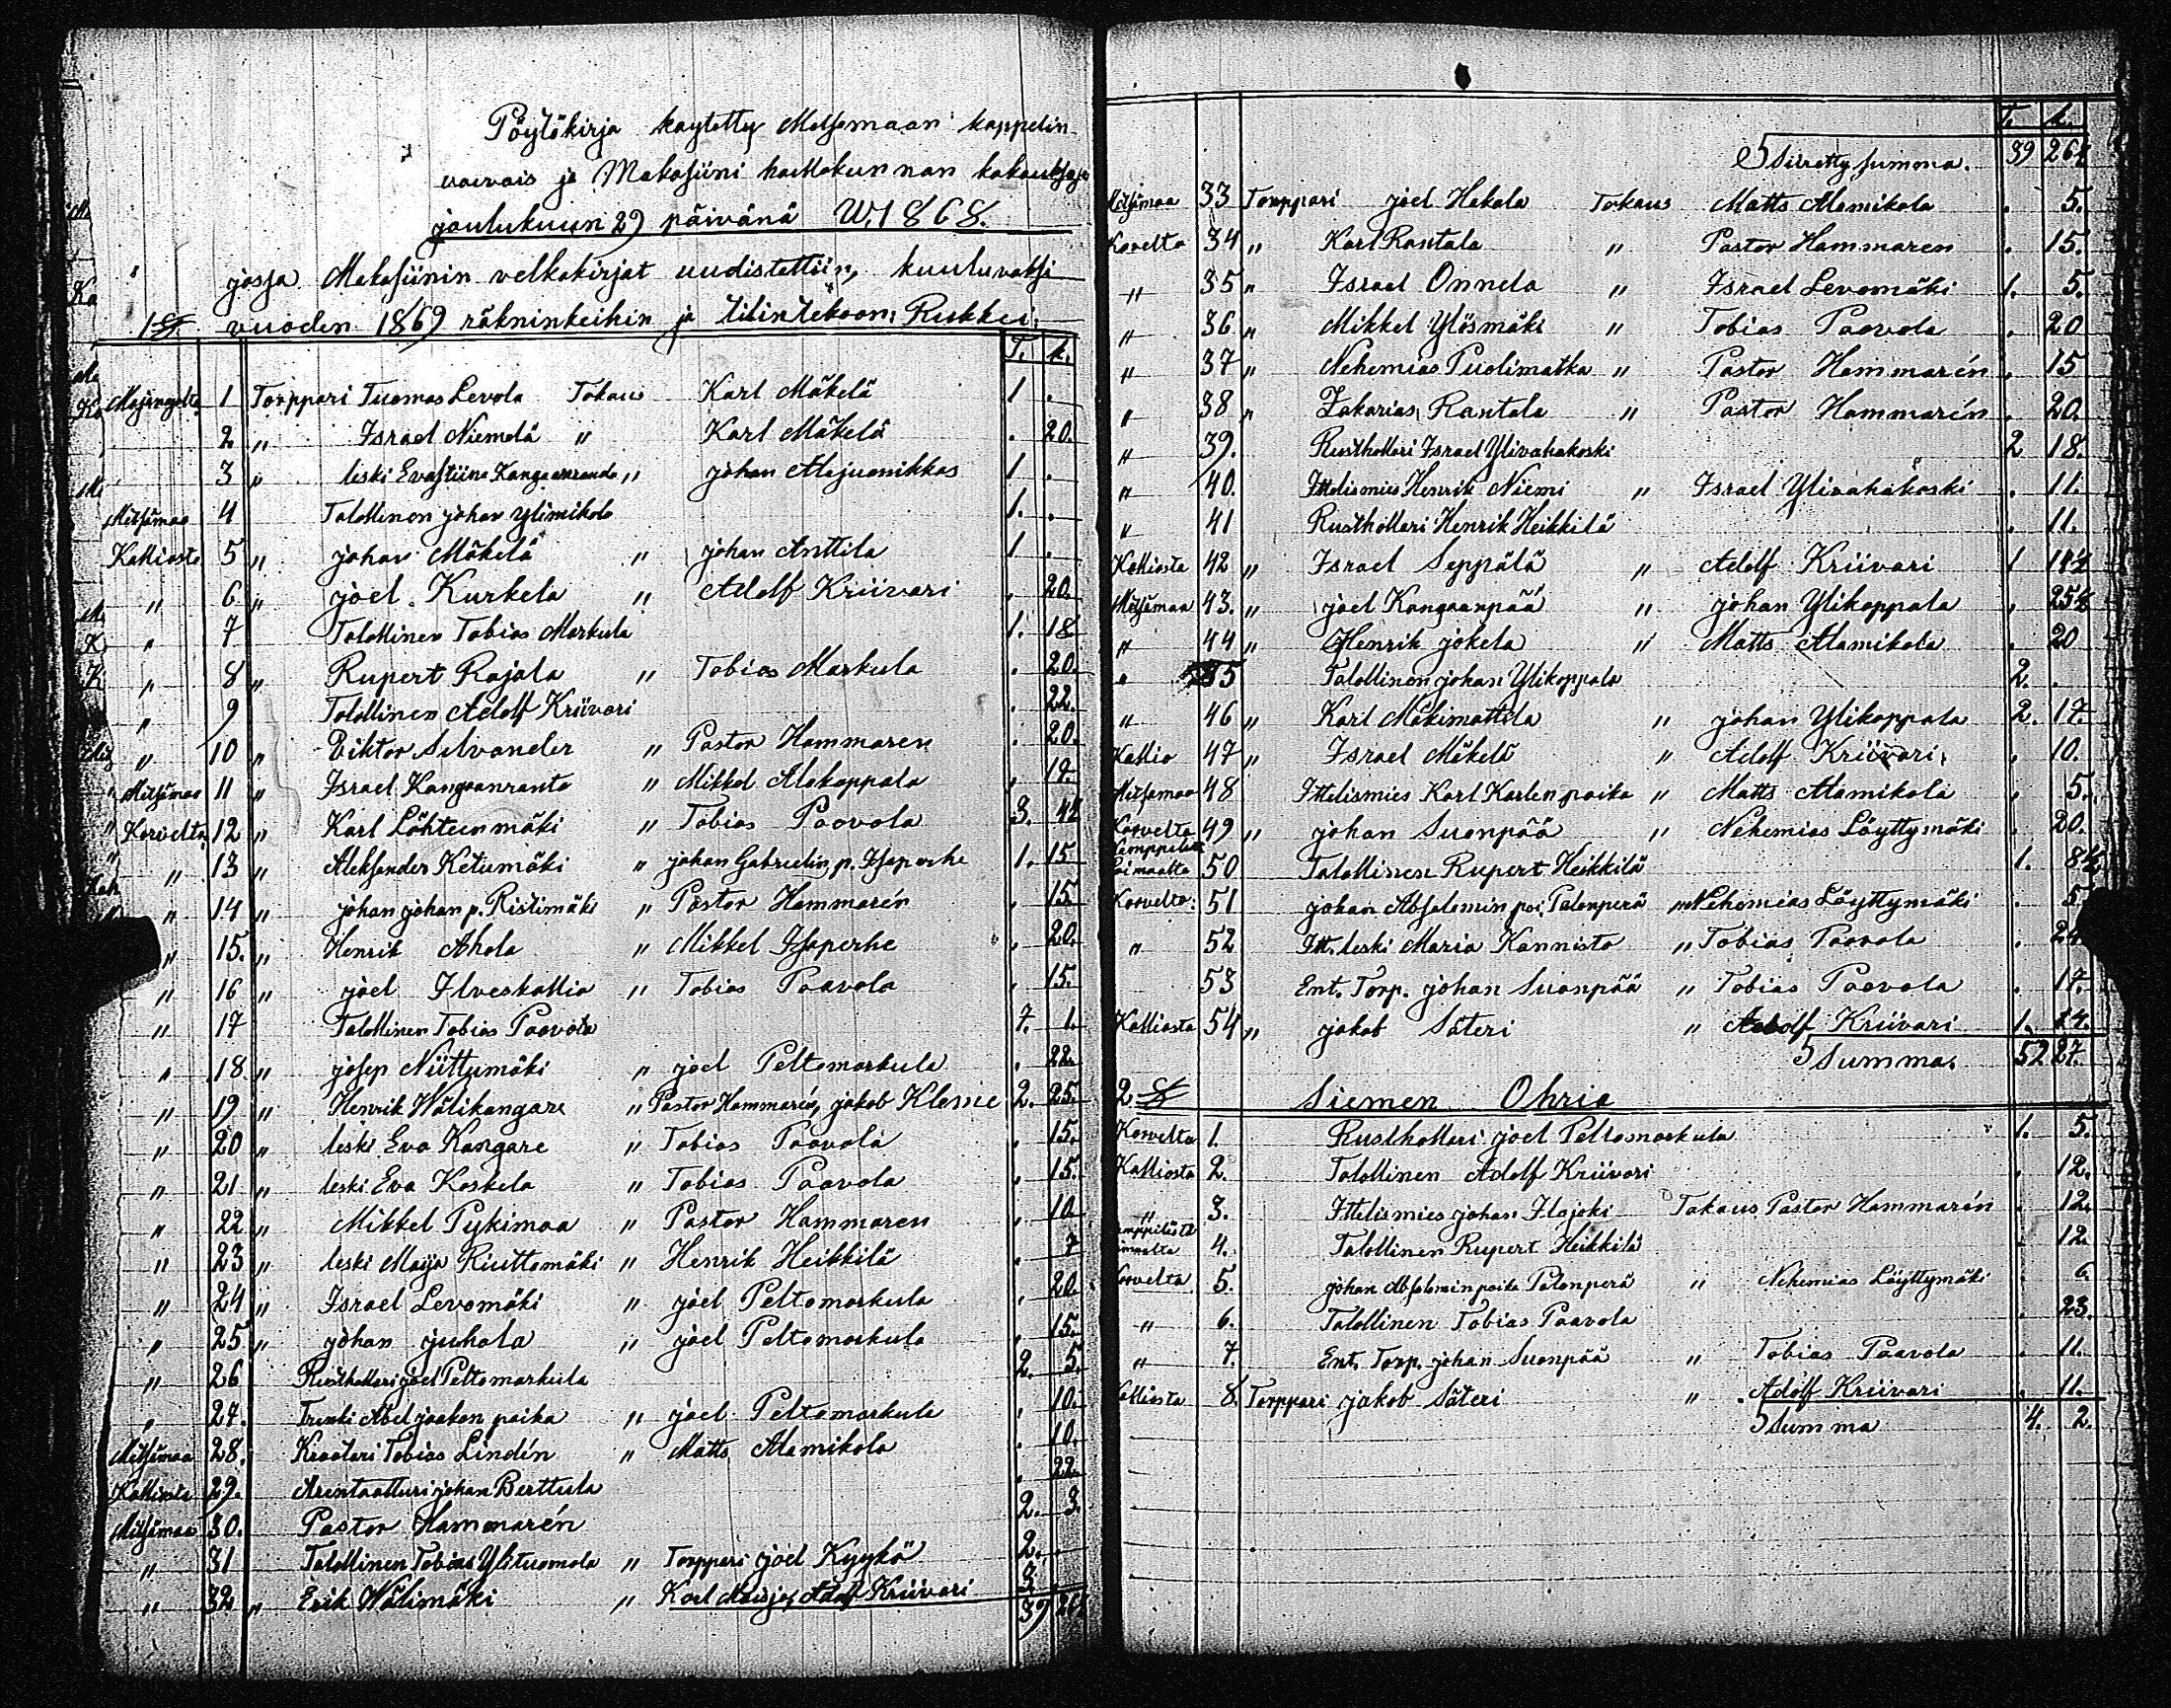 Pöytäkirja käytetty Metsämaan kappelin
vaivais ja Makasiini haltokunnan kokouksesa
joulukuun 29 päivänä W. 1868.
jossa Makasiinin velkakirjat uudistettiin, kuuluvaksi
1 § vuoden 1869 räkninkeihin ja tilintekoon: Rukkei:
T. k.
1 Torppari Tuomas Levola Takaus Karl Mäkelä 1 .
2 " Israel Niemelä " Karl Mäkelä . 20.
3 " leski Evastiina Kangaanranda " johan Alajuonikkas 1 .
Metsämaa 4 Talollinen johan Ylimikola 1. .
Kalliosta 5 " johan Mäkelä " johan Anttila 1 .
" 6 " joel Kurkela " Adolf Kriivari . 20.
" 7 Talollinen Tobias Markula 1. 18
" 8 " Rupert Rajala " Tobias Markula . 20.
" 9 Talollinen Adolf Kriivari . 22.
" 10 " Viktor Silvander " Pastor Hammaren . 20.
Metsämaa 11 " Israel Kangaanranta " Mikkel Alakappala . 19.
Korvelta 12 " Karl Lähteenmäki " Tobias Paavola 3.
" 13 " Aleksander Ketumäki " johan Gabrielin p. Isoperhe 1. 15
" 14 " johan johan p. Ristimäki " Pastor Hammarén . 15.
" 15. " Henrik Ahola " Mikkel Isoperhe . 20.
" 16 " joel Ilveskallio " Tobias Paavola . 15.
" 17 Talollinen Tobias Paavola 7. 1.
" 18. " josep Niittumäki " joel Peltomarkula . 22.
" 19 " Henrik Wälikangare " Pastor Hammarén, jakob Klemie 2. 25.
" 20 " leski Eva Kangare " Tobias Paavola . 15.
" 21 " leski Eva Koskela " Tobias Paavola . 15.
" 22 " Mikkel Pykimaa " Pastor Hammaren . 10
" 23 " leski Maija Riuttamäki " Henrik Heikkilä . 7
" 24 " Israel Levomäki " joel Peltomarkula . 20.
" 25 " johan juhola " joel Peltomarkula . 15.
" 26 Rusthollari joel Peltomarkula 2. 5.
" 27. Trenki Abel jaakon poika " joel Peltomarkula . 10.
Metsämaa 28. Kraatari Tobias Lindén " Matts Alamikola . 10.
Kalliosta 29. Arentaatturi johan Berttula . 22.
Metsämaa 30. Pastor Hammarén 2. 3.
" 31 Talollinen Tobias Ylituomola " Torppari joel Kyykö 2. .
" 32 " Erik Wälimäki " Karl Maisja, Adolf Kriivari 3
39 26½
T. k.
Siirretty summa. 39 26½
Metsämaa 33 Torppari joel Hakala Takaus Matts Alamikola . 5.
Korvelta 34 " Karl Rantala " Pastor Hammaren . 15.
" 35 " Israel Onnela " Israel Levomäki 1. 5.
" 36 " Mikkel Ylösmäki " Tobias Paavola . 20
" 37 " Nehemias Puolimatka " Pastor Hammarén . 15
" 38 " Zakarias Rantala " Pastor Hammarén . 20.
" 39. Rusthollari Israel Ylivahakoski 2 18.
" 40. Ittelismies Henrik Niemi " Israel Ylivahakoski . 11.
" 41 Rusthollari Henrik Heikkilä . 11.
Kalliosta 42 " Israel Seppälä " Adolf Kriivari 1
Metsämaa 43. " joel Kangaanpää " johan Ylikappala . 25½
" 44 " Henrik jokela " Matts Alamikola . 20
" 45 Talollinen johan Ylikappala 2. .
" 46 " Karl Mäkimattila " johan Ylikappala 2. 17.
Kallio 47 " Israel Mäkelä " Adolf Kriivari . 10.
Metsämaa 48 Ittelismies Karl Karlen poika " Matts Alamikola . 5.
Korvelta 49 " johan Suonpää " Nehemias Löyttymäki . 20.
50 Talollinen Rupert Heikkilä 1. 8½
Korvelta: 51 johan Absalomin poi. Palonperä " Nehemias Löyttymäki . 5
" 52 Itt. leski Maria Kannisto " Tobias Paavola .
53 Ent. Torp. johan Suonpää " Tobias Paavola . 17.
Kalliosta 54 " jakob Säteri " Adolf Kriivari 1. 14.
Summa. 52 27.
2 § Siemen Ohria
Korvelta 1. Rusthollari joel Peltomarkula 1. 5.
Kalliosta 2. Talollinen Adolf Kriivari . 12.
" 3. Ittelismies johan Ilajoki Takaus Pastor Hammarén . 12.
4. Talollinen Rupert Heikkilä . 12.
Korvelta 5. johan Absalomin poika Palonperä " Nehemias Löyttymäki . 6.
" 6. Talollinen Tobias Paavola . 23.
" 7. Ent. Torp. johan Suonpää " Tobias Paavola . 11.
Kalliosta 8. Torppari jakob Säteri " Adolf Kriivari . 11.
Summa 4. 2.